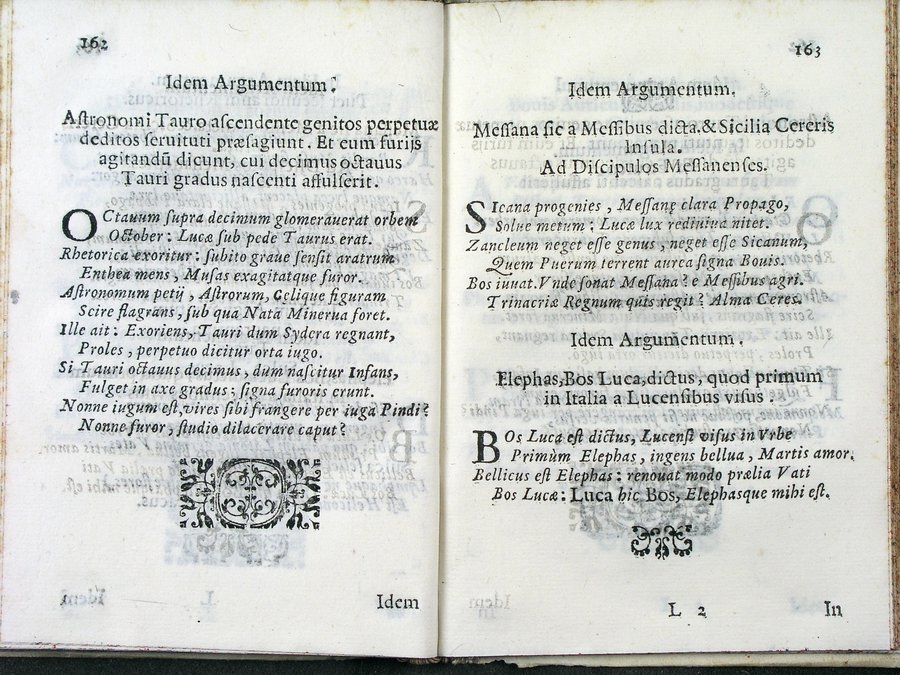 162
Idem Argumentum.
Aſtronomi Tauro aſcendente genitos perpetuæ
deditos ſeruituti præſagiunt. Et eum furijs
agitandū dicunt, cui decimus octauus
Tauri gradus naſcenti affulſerit.
OCtauum ſupra decimum glomerauerat orbem
October: Lucæ ſub pede Taurus erat.
Rhetorica exoritur: ſubito graue ſenſit aratrum
Enthea mens, Muſas exagitatque furor.
Aſtronomum petij, Aſtrorum, Cęlique figuram
Scire flagrans, ſub qua Nata Minerua foret.
Ille ait: Exoriens, Tauri dum Sydera regnant,
Proles, perpetuo dicitur orta iugo.
Si Tauri octauus decimus, dum naſcitur Infans,
Fulget in axe gradus; ſigna furoris erunt.
Nonne iugum eſt, vires ſibi frangere per iuga Pindi?
Nonne furor, ſtudio dilacerare caput?
Idem
163
Idem Argumentum.
Meſſana ſic a Meſſibus dicta. & Sicilia Cereris
Inſula.
Ad Diſcipulos Meſſanenſes.
SIcana progenies, Meſſanę clara Propago,
Solue metum: Lucæ lux rediuiua nitet.
Zancleum neget eſſe genus, neget eſſe Sicanum,
Quem Puerum terrent aurea ſigna Bouis.
Bos iuuat. Vnde ſonat Meſſana? e Meſſibus agri.
Trinacriæ Regnum quis regit? Alma Ceres.
Idem Argumentum.
Elephas, Bos Luca, dictus, quod primum
in Italia a Lucenſibus viſus.
BOs Luca eſt dictus, Lucenſi viſus in Vrbe
Primùm Elephas, ingens bellua, Martis amor.
Bellicus eſt Elephas: renouat modo prælia Vati
Bos Lucæ: Luca hic Bos, Elephasque mihi eſt.
L 2
In